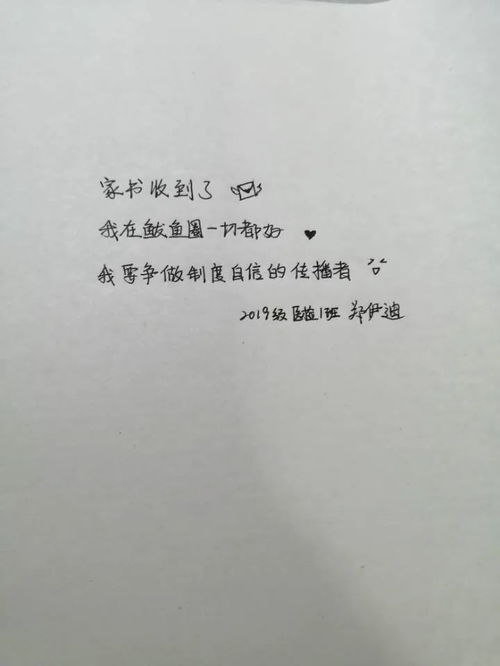 家书收到了
我在鲅鱼圈一切都好
我要争做制度自信的传播者
2019级医检1班 郑伊迪